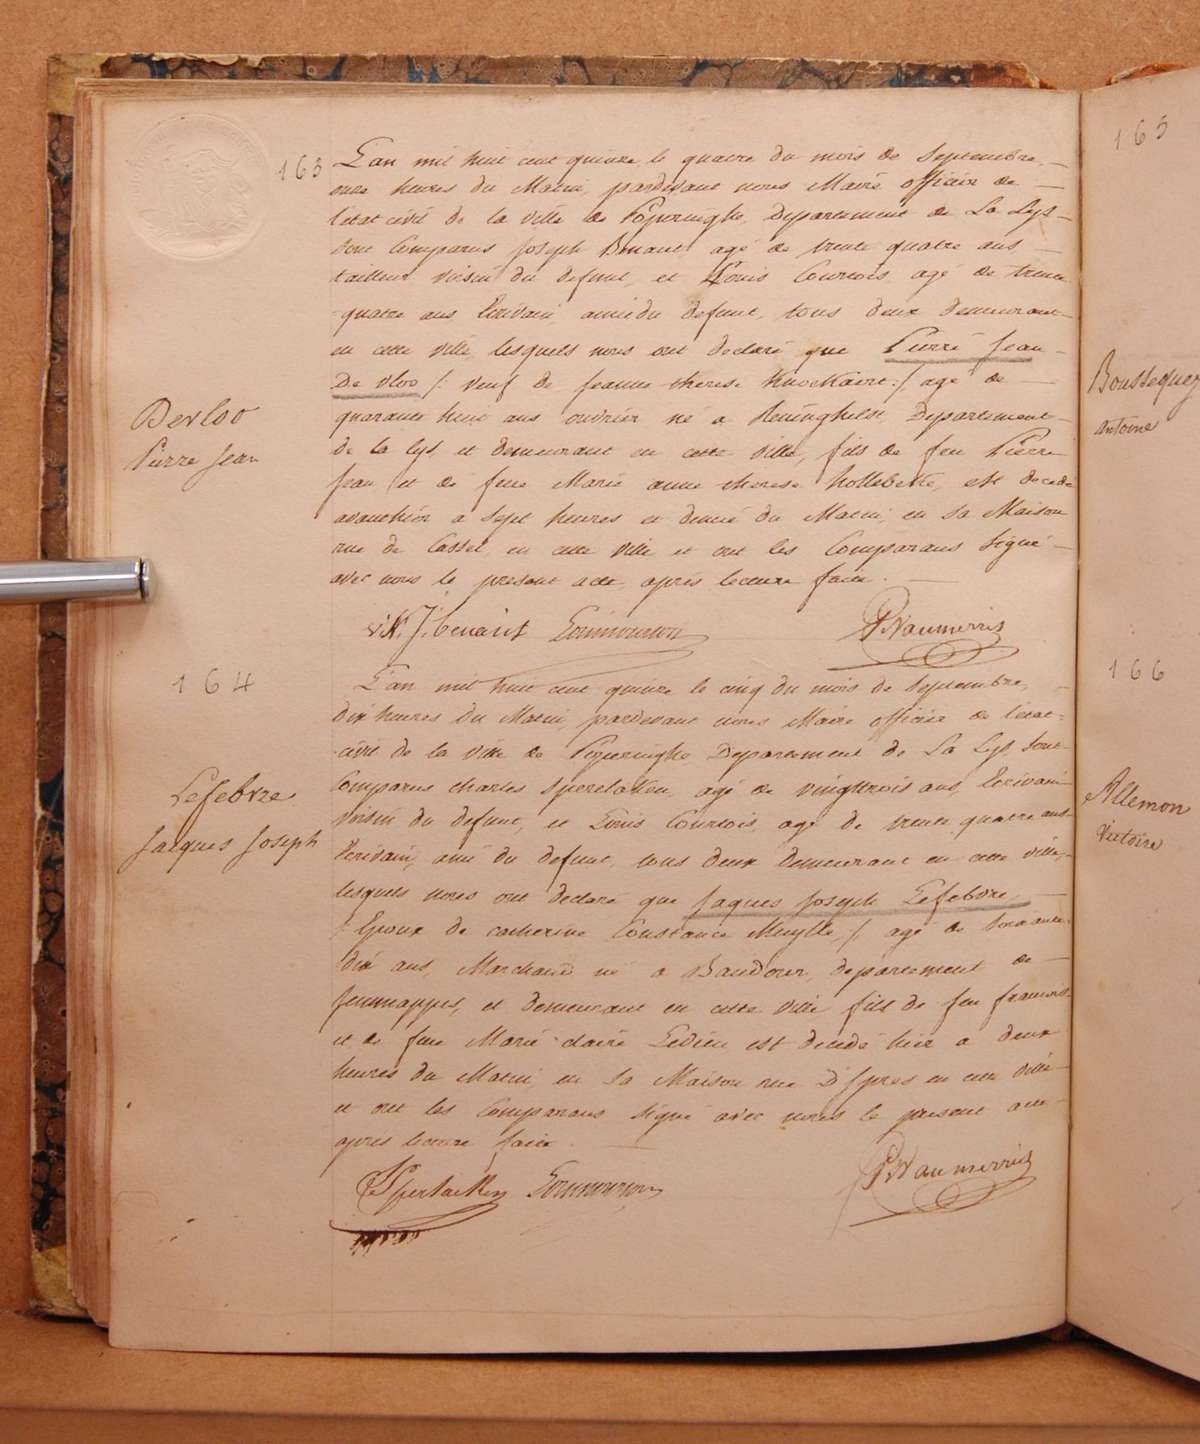 163
L'an mil huit cent quinze le quatre du mois de Septembre,
onze heures du Matin, pardevant nous Maire officier de
l'etat civil de la ville de Poperinghe, Departement de La Lys
sont Comparus Joseph Benaut agé de trente quatre ans
tailleur voisin du defunt, et Louis Courtois agé de trente
quatre ans Ecrivain, ami du defunt, tous deux demeurant
en cette ville, lesquels nous ont declaré que Pierre Jean
De Vloo /: veuf de Jeanne therese Knockaert :/ agé de
quarante huit ans ouvrier né a Reninghelst, Departement
de la Lys, et demeurant en cette ville, fils de feu Pierre
Jean et de feue Marie anne therese hollebeke, est decedé
avanthier a sept heures et demie du Matin, en sa Maison
rue de Cassel, en cette ville et ont les Comparans Signé
avec nous le present acte, après lecture faite.
Devloo
Pierre Jean
164
L'an mil huit cent quinze le cinq du mois de Septembre,
dix heures du Matin, pardevant nous Maire officier de l'etat
civil de la ville de Poperinghe Departement de La Lys, sont
Comparus charles Sperelaken, agé de vingttrois ans, Ecrivain
voisin du defunt, et Louis Courtois, agé de trente quatre ans
Ecrivain, ami du defunt, tous deux demeurant en cette ville,
lesquels nous ont declaré que Jaques Joseph Lefebvre
/: Epoux de catherine Constance Muylle :/ agé de soixante
dix ans, Marchand né a Baudour, departement de
Jemmappes, et demeurant en cette ville fils de feu francois
et de feue Marie claire Ledieu est decedé hier a deux
heures du Matin, en sa Maison rue D'Ypres en cette ville
et ont les Comparans signé avec nous le present acte
après lecture faite
Lefebvre
Jacques Joseph
165
Boussequey
Antoine
166
Allemon
Victoire